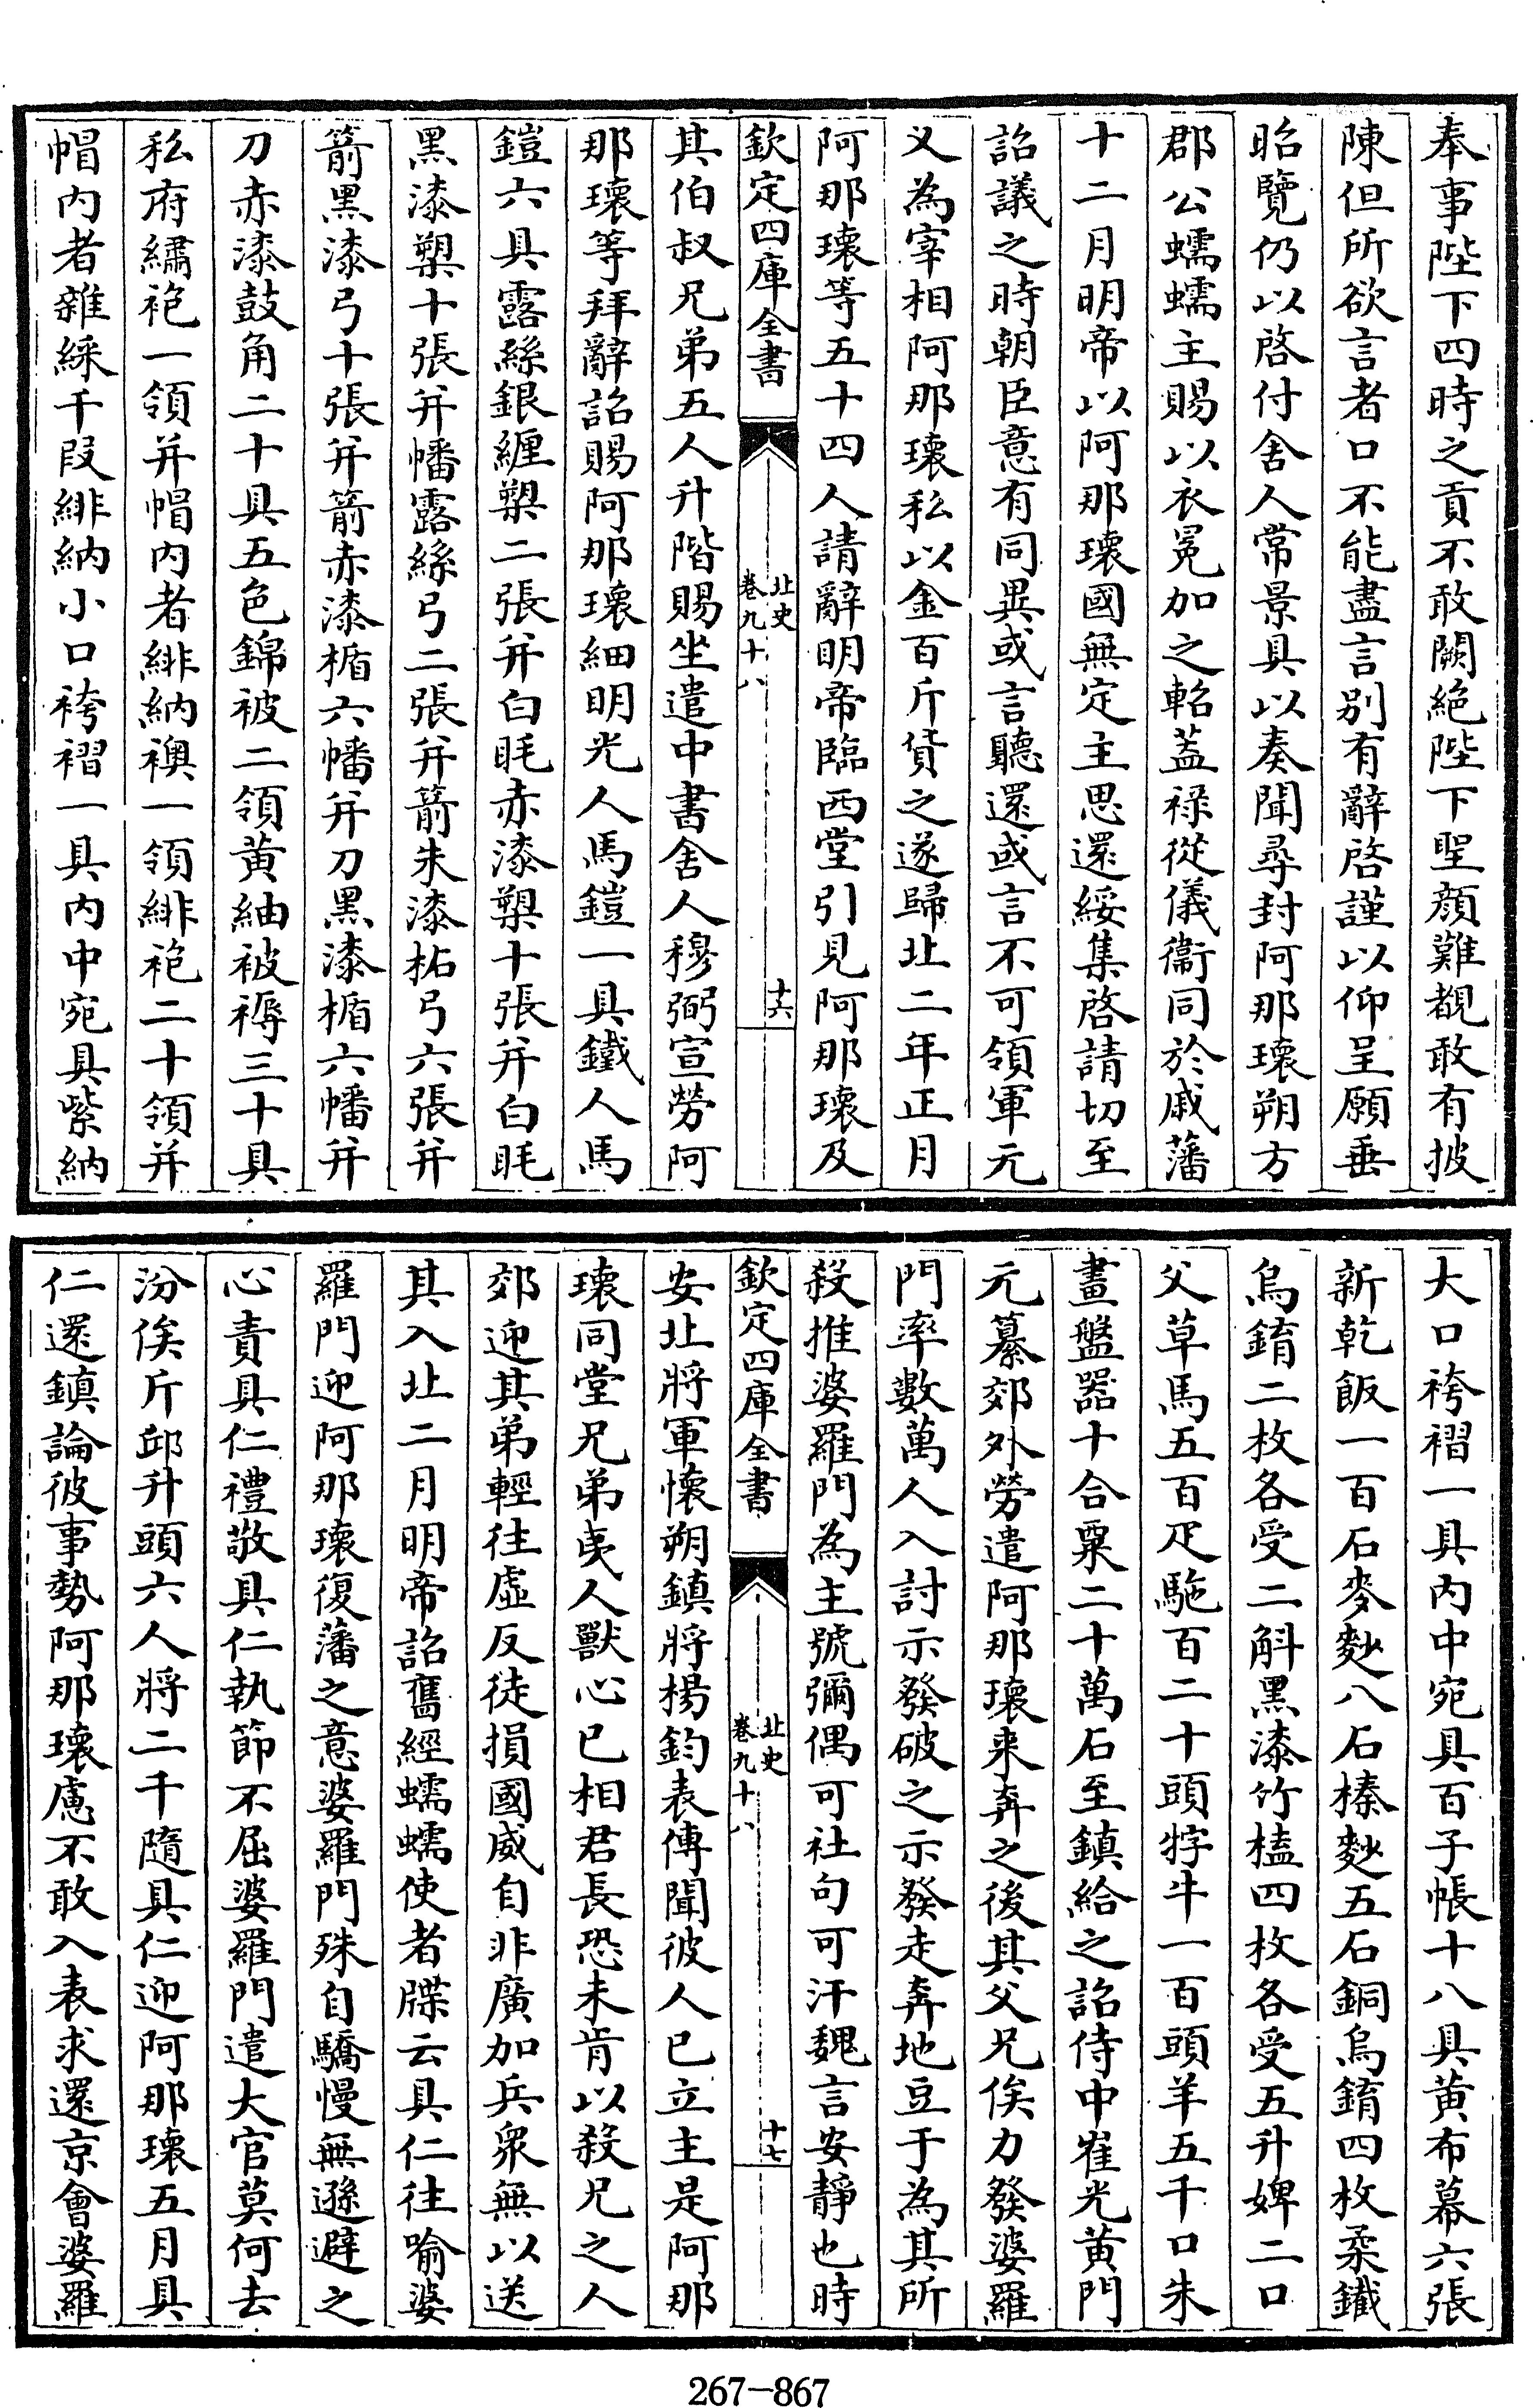 奉事陛下四時之貢不敢闕絶陛下聖顔難覩敢有披
陳但所欲言者口不能盡言别有辭啓謹以仰呈願垂
昭覽仍以啓付舍人常景具以奏聞尋封阿那瓌朔方
郡公蠕蠕主賜以衣冕加之軺蓋禄從儀衞同於戚藩
十二月明帝以阿那瓌國無定主思還綏集啓請切至
詔議之時朝臣意有同異或言聽還或言不可領軍元
义為宰相阿那瓌私以金百斤貨之遂歸北二年正月
阿那瓌等五十四人請辭明帝臨西堂引見阿那瓌及
欽定四庫全書
北史
卷九十八
十六
其伯叔兄弟五人升階賜坐遣中書舍人穆弼宣勞阿
那瓌等拜辭詔賜阿那瓌細明光人馬鎧一具鐵人馬
鎧六具露絲銀纒槊二張并白眊赤漆槊十張并白眊
黑漆槊十張并幡露絲弓二張并箭朱漆柘弓六張并
箭黑漆弓十張并箭赤漆楯六幡并刀黑漆楯六幡并
刀赤漆鼓角二十具五色錦被二領黄紬被褥三十具
私府繡袍一領并帽内者緋納襖一領緋袍二十領并
帽内者雜綵千段緋納小口袴褶一具内中宛具紫納
大口袴褶一具内中宛具百子帳十八具黄布幕六張
新乾飯一百石麥麨八石榛麨五石銅烏錥四枚柔鐵
烏錥二枚各受二斛黑漆竹榼四枚各受五升婢二口
父草馬五百疋駞百二十頭牸牛一百頭羊五千口朱
畫盤器十合粟二十萬石至鎮給之詔侍中崔光黄門
元纂郊外勞遣阿那瓌来奔之後其父兄俟力發婆羅
門率數萬人入討示發破之示發走奔地豆于為其所
殺推婆羅門為主號彌偶可社句可汗魏言安静也時
欽定四庫全書
北史
卷九十八
十七
安北將軍懷朔鎮將楊鈞表傳聞彼人已立主是阿那
瓌同堂兄弟夷人獸心已相君長恐未肯以殺兄之人
郊迎其弟輕往虚反徒損國威自非廣加兵衆無以送
其入北二月明帝詔舊經蠕蠕使者牒云具仁往喻婆
羅門迎阿那瓌復藩之意婆羅門殊自驕慢無遜避之
心責具仁禮敬具仁執節不屈婆羅門遣大官莫何去
汾俟斤邱升頭六人將二千隨具仁迎阿那瓌五月具
仁還鎮論彼事勢阿那瓌慮不敢入表求還京會婆羅
267-867